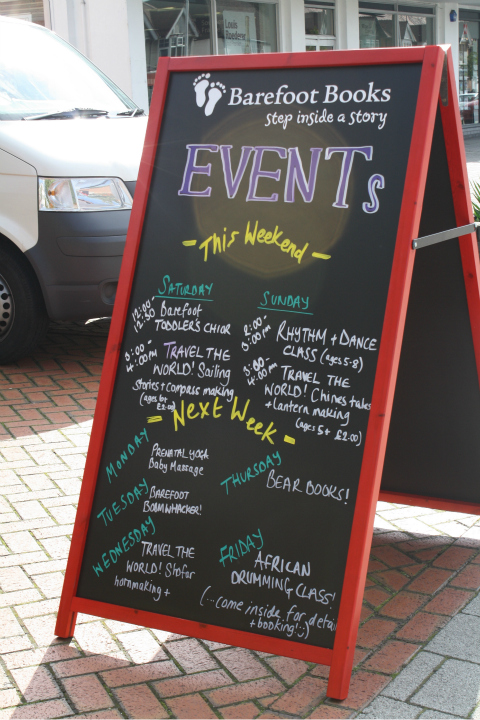 Louis
Barefoot Books
step inside a story
EVENTs
- This Weekend -
SATURDAY
12:00-
12:30 Barefoot
TODDLER'S CHIOR
3:00-
4:00PM TRAVEL THE
WORLD! Sailing
stories + compass making
(ages 6+ £2.00)
SUNDAY
2:00-
3:00PM RHYTHM + DANCE
CLASS (ages 5-8)
3:00-
4:00PM TRAVEL THE
WORLD! Chines tales
+ Lantern making
(ages 5+ £2.00)
- Next Week -
MONDAY
PRENATAL YOGA
Baby Massage
TUESDAY
BAREFOOT
BOOMWHACKER!
WEDNESDAY
TRAVEL THE
WORLD! Stofar
hornmaking +
THURSDAY
BEAR BOOKS!
FRIDAY
AFRICAN
DRUMMING CLASS!
(...come inside for detai
+ booking! :)